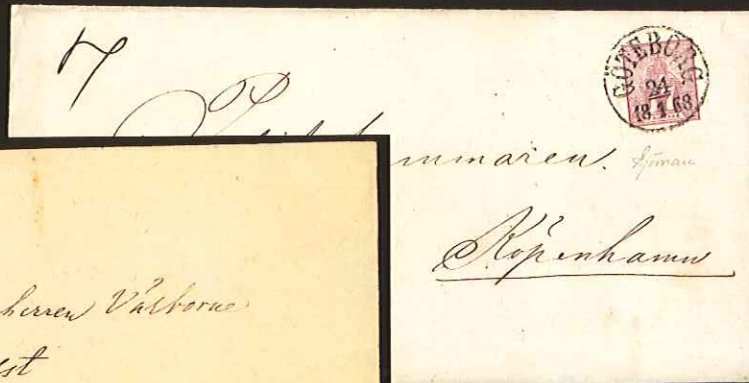 7
GÖTEBORG
24
18 1 68
mmaren.
Köpenhamn
herren Välborne
est